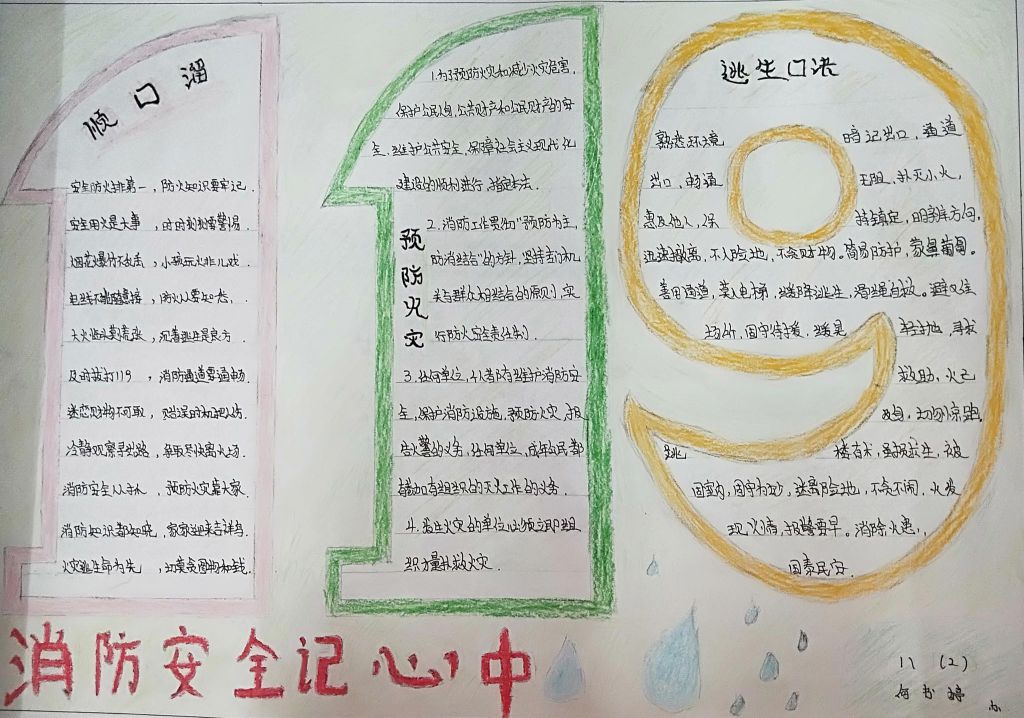 顺口溜
安全防火排第一，防火知识要牢记.
安全用火是大事，时时刻刻需警惕.
烟花爆竹不乱丢，小孩玩火非儿戏.
，防火人要知危，
大火临头莫慌张，沉着逃生是良方
及时拨打119，消防通道要通畅.
迷恋财物不可取，贻误时机把人伤.
冷静观察寻出路，争取尽快离火场.
消防安全从手，预防火灾靠大家.
消防知识都知晓，家家迎来吉祥鸟.
火灾逃生命为先，切莫贪图物和钱.
预防火灾
1.为了预防火灾和减少火灾危害，
保护公民人身，公共财产和公民财产的安
全，维护公共安全，保障社会主义现代化
建设的顺利进行，指定本法.
2.消防工作贯彻"预防为主，
防消结合"的方针，坚持专门机
关与群众相结合的原则，实
行防火安全责任制.
3.任何单位，个人都有维护消防安
全，保护消防设施，预防火灾，报
告火警的义务，任何单位，成年公民都
参加有组织的灭火工作的义务.
4.发生火灾的单位必须立即组
织力量扑救火灾.
逃生口决
熟悉环境 暗记出口，通道
出口，畅通 无阻，扑灭小火，
惠及他人，保 持镇定，明辨方向，
迅速撤离，不入险地，不贪财物。简易防护，蒙鼻匍匐。
善用通道，莫入电梯，缓降逃生，滑绳自救。避火住
场所，固守待援，缓晃 轻抛，寻求
救助，火已
及身，切勿惊跑，
跳 楼有术，虽损求生，被
困室内，固守为妙，迷离险地，不贪不闹，火发
现火情，报警要早。消除火患，
国泰民安.
消防安全记心中
八（2）
何 婷